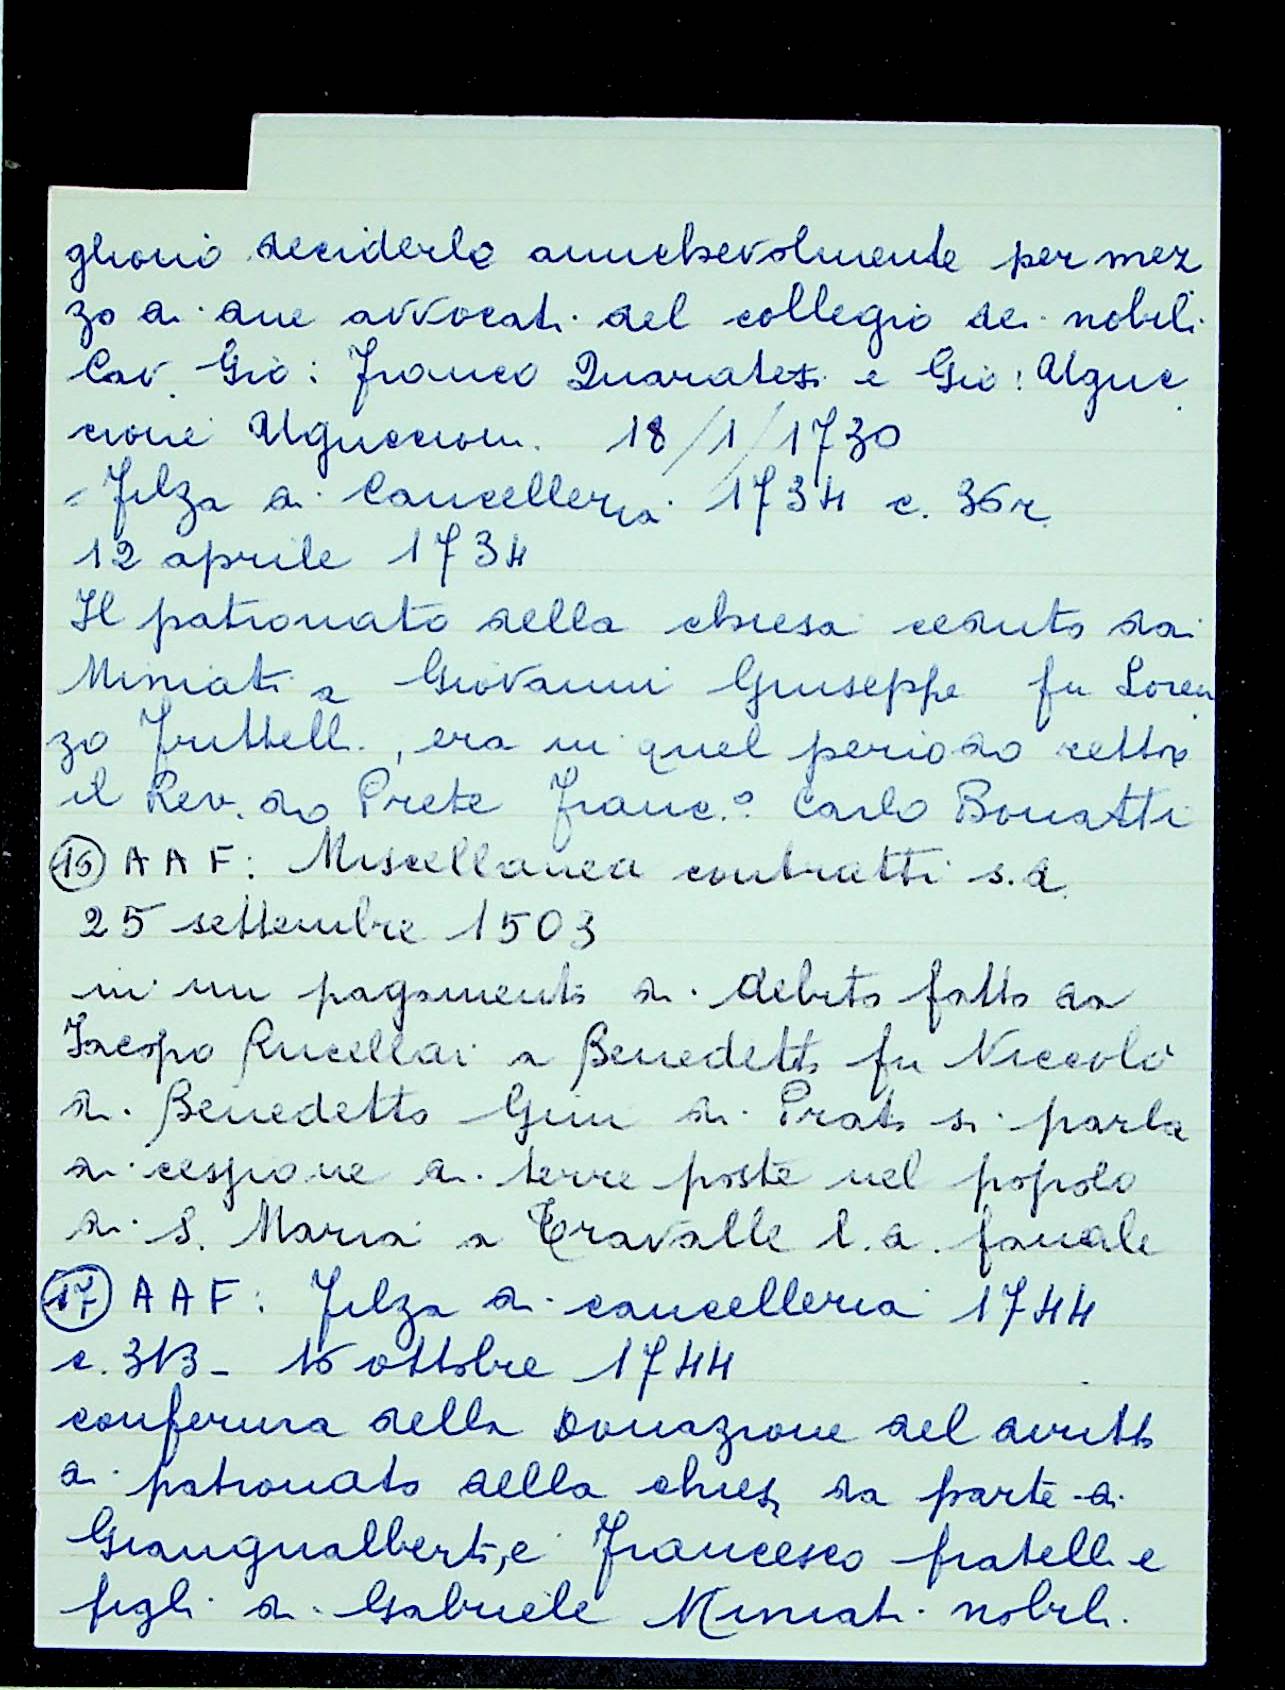 gliono deciderla amichevolmente per mez
zo di due avvocati del collegio dei nobili
Cav. Gio: Franco Quaratesi e Gio: Uguc
cione Uguccioni. 18/1/1730
- Filza di Cancelleria 1734 c. 36r.
12 aprile 1734
Il patronato della chiesa ceduto dai
Miniati a Giovanni Giuseppe fu Loren
zo Fruttelli, era in quel periodo rettore
il Rev.do Prete Franc.º Carlo Bonatti
16 AAF: Miscellanea contratti s.d.
25 settembre 1503
in un pagamento di debito fatto da
Jacopo Rucellai a Benedetto fu Niccolò
di Benedetto Gini di Prato si parla
di cessione di terre poste nel popolo
di S. Maria a Travalle l.d.
17 AAF: Filza di cancelleria 1744
c. 313 - 16 ottobre 1744
conferma della Donazione del diritto
di patronato della chiesa da parte di
Giangualberto, e Francesco fratelli e
figli di Gabriele Miniati nobili.